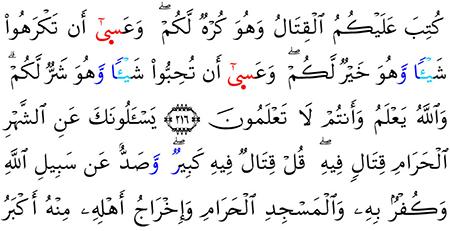 كُتِبَ عَلَيْكُمُ ٱلْقِتَالُ وَهُوَ كُرْهٌ لَّكُمْ ۖ وَعَسَىٰٓ أَن تَكْرَهُوا۟
شَيْـًٔا وَهُوَ خَيْرٌ لَّكُمْ ۖ وَعَسَىٰٓ أَن تُحِبُّوا۟ شَيْـًٔا وَهُوَ شَرٌّ لَّكُمْ ۗ
وَٱللَّهُ يَعْلَمُ وَأَنتُمْ لَا تَعْلَمُونَ ﴿٢١٦﴾ يَسْـَٔلُونَكَ عَنِ ٱلشَّهْرِ
ٱلْحَرَامِ قِتَالٍ فِيهِ ۖ قُلْ قِتَالٌ فِيهِ كَبِيرٌ ۖ وَصَدٌّ عَن سَبِيلِ ٱللَّهِ
وَكُفْرٌۢ بِهِۦ وَٱلْمَسْجِدِ ٱلْحَرَامِ وَإِخْرَاجُ أَهْلِهِۦ مِنْهُ أَكْبَرُ